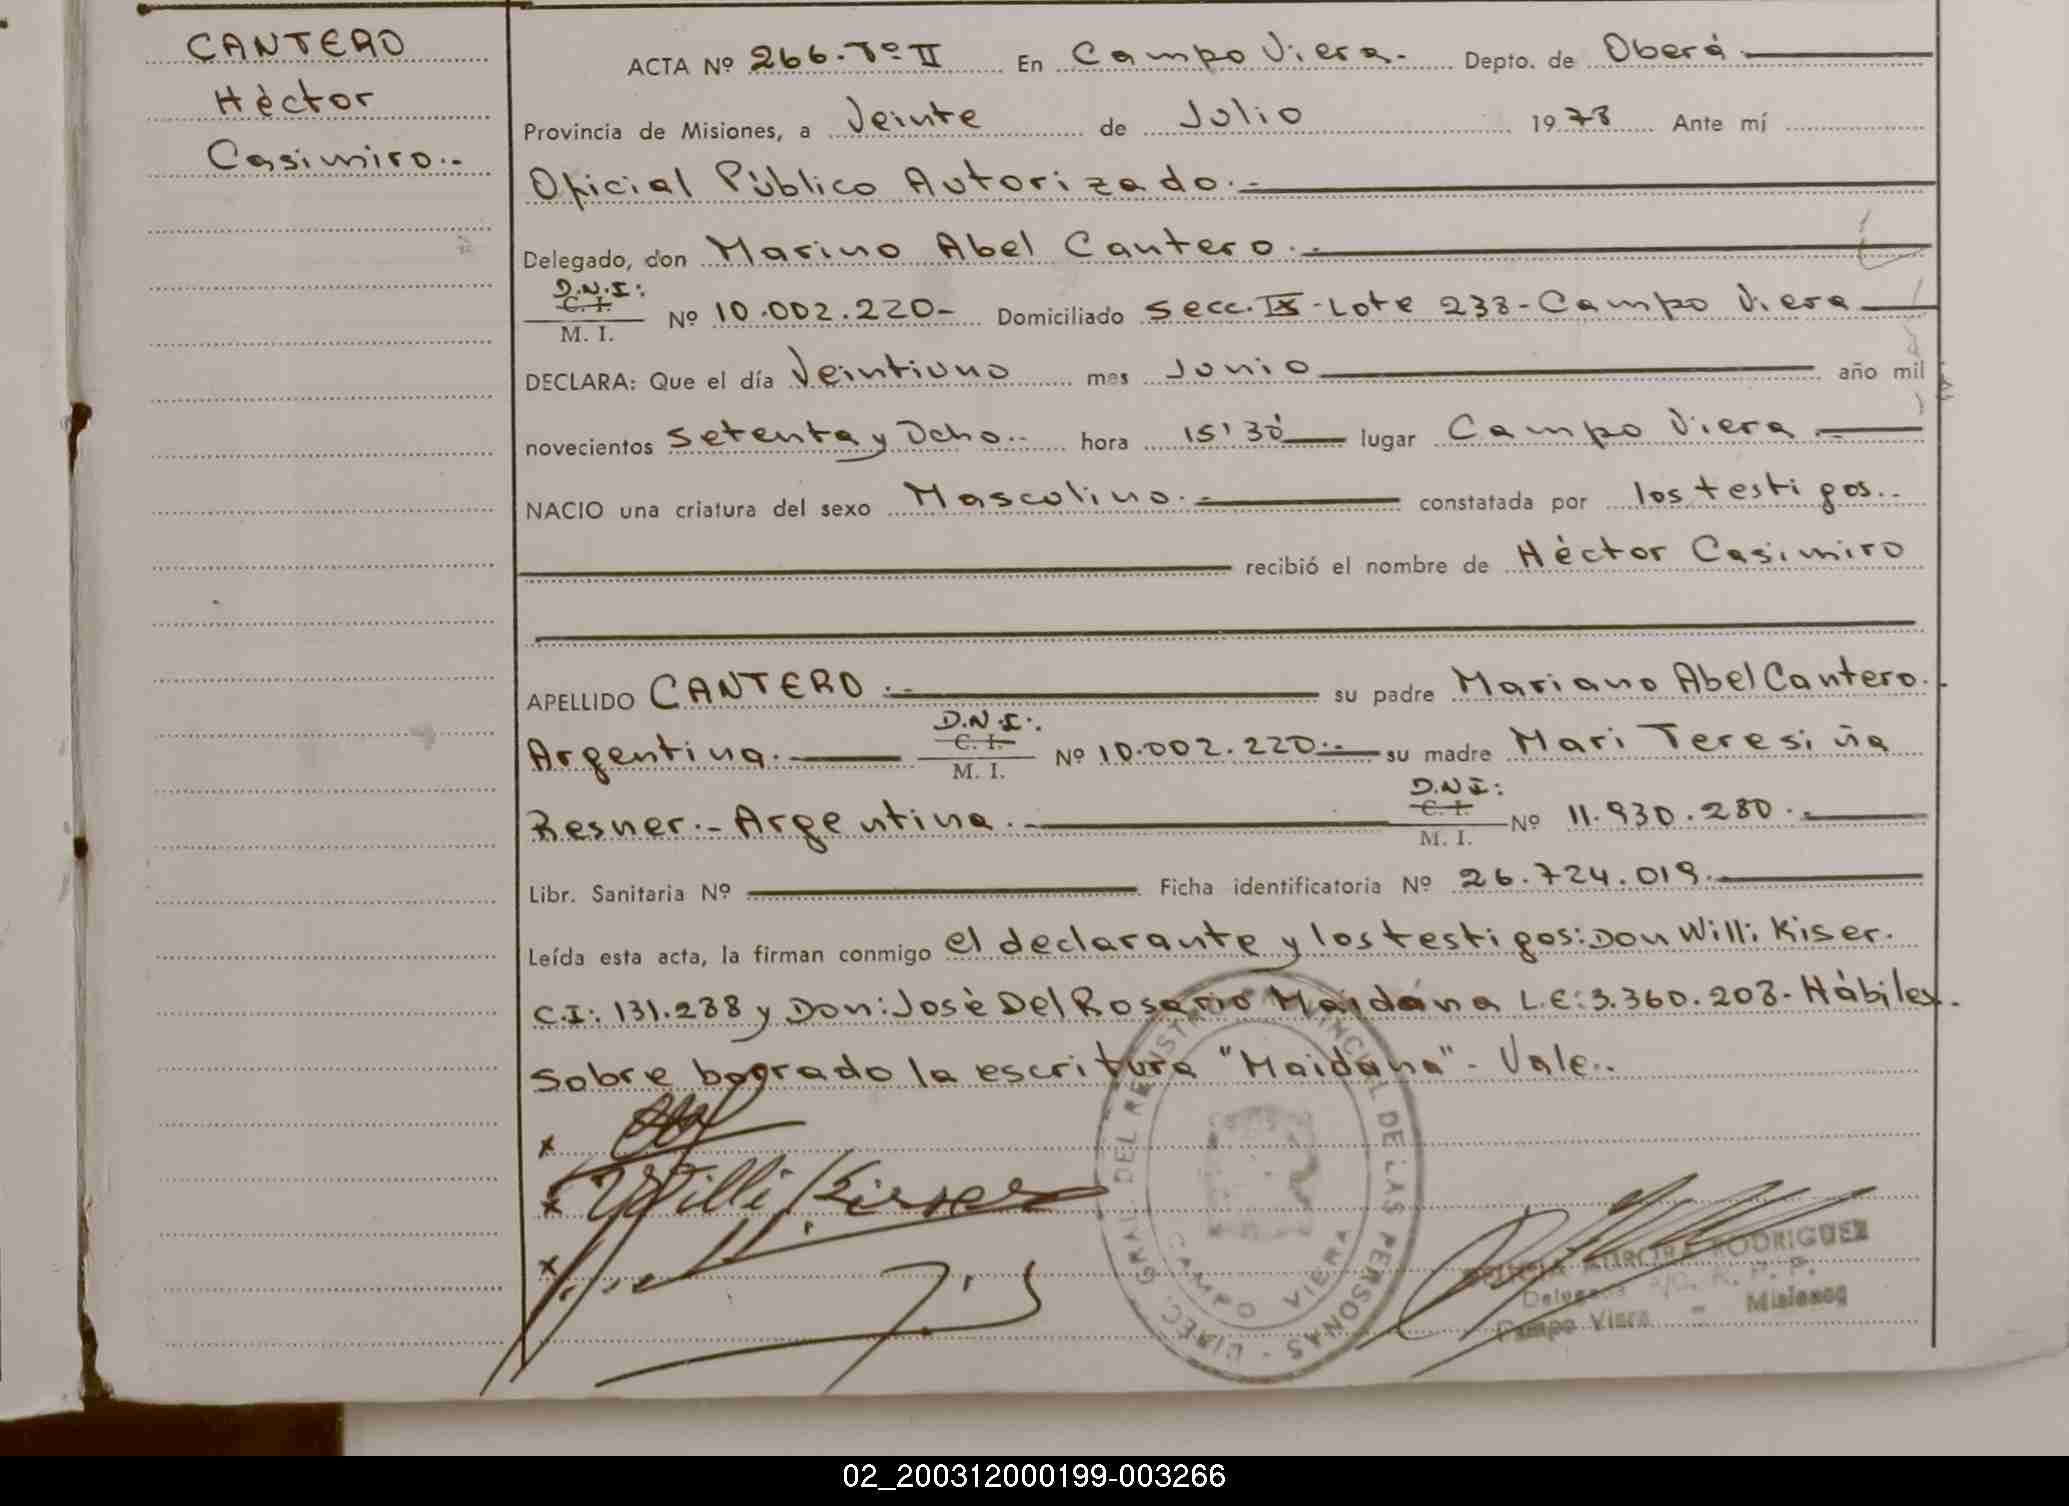 CANTERO
Héctor
Casimiro.-
ACTA Nº 266.Tº II En Campo Viera.- Depto. de Oberá
Provincia de Misiones, a Veinte de Julio 1978 Ante mí
Oficial Público Autorizado.-
Delegado, don Marino Abel Cantero.-
D.N.I:
C. I.
M. I. Nº 10.002.220- Domiciliado Secc. IX-Lote 238-Campo Viera
DECLARA: Que el día Veintiuno mes Junio año mil
novecientos Setenta y Ocho.. hora 15'30 lugar Campo Viera
NACIO una criatura del sexo Masculino.- constatada por los testigos..
recibió el nombre de Héctor Casimiro
APELLIDO CANTERO.- su padre Mariano Abel Cantero.
Argentina.- D.N.I:. C. I. M. I. Nº 10.002.220.- su madre Mari Teresiña
Resner.- Argentina.- D.N.I: C. I. M. I. Nº 11.930.280.-
Libr. Sanitaria Nº Ficha identificatoria Nº 26.724.019.
Leída esta acta, la firman conmigo el declarante y los testigos: Don Willi Kiser.
C.I: 131.288 y Don: José Del Rosario Maidana L.E: 3.360.208- Hábiles.
Sobre borrado la escritura "Maidana"- Vale..
x
x Willi Kirser
x
DIREC. GRAL. DEL REGISTRO PROVINCIAL DE LAS PERSONAS -
CAMPO VIERA
AURORA RODRIGUEZ
Delegada R. P. P.
Campo Viera - Misiones
02_200312000199-003266